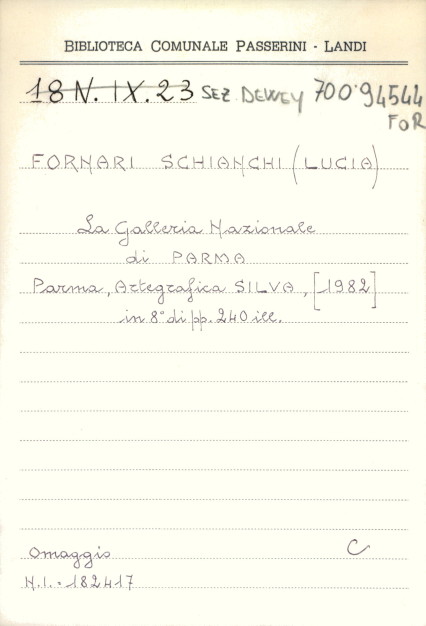 BIBLIOTECA COMUNALE PASSERINI - LANDI
18 N. IX. 23 SEZ DEWEY 700.94544
FOR
FORNARI SCHIANCHI (LUCIA)
La Galleria Nazionale
di PARMA
Parma, Artegrafica SILVA, [1982]
in 8° di pp. 240 ill.
Omaggio C
N.I. = 182417